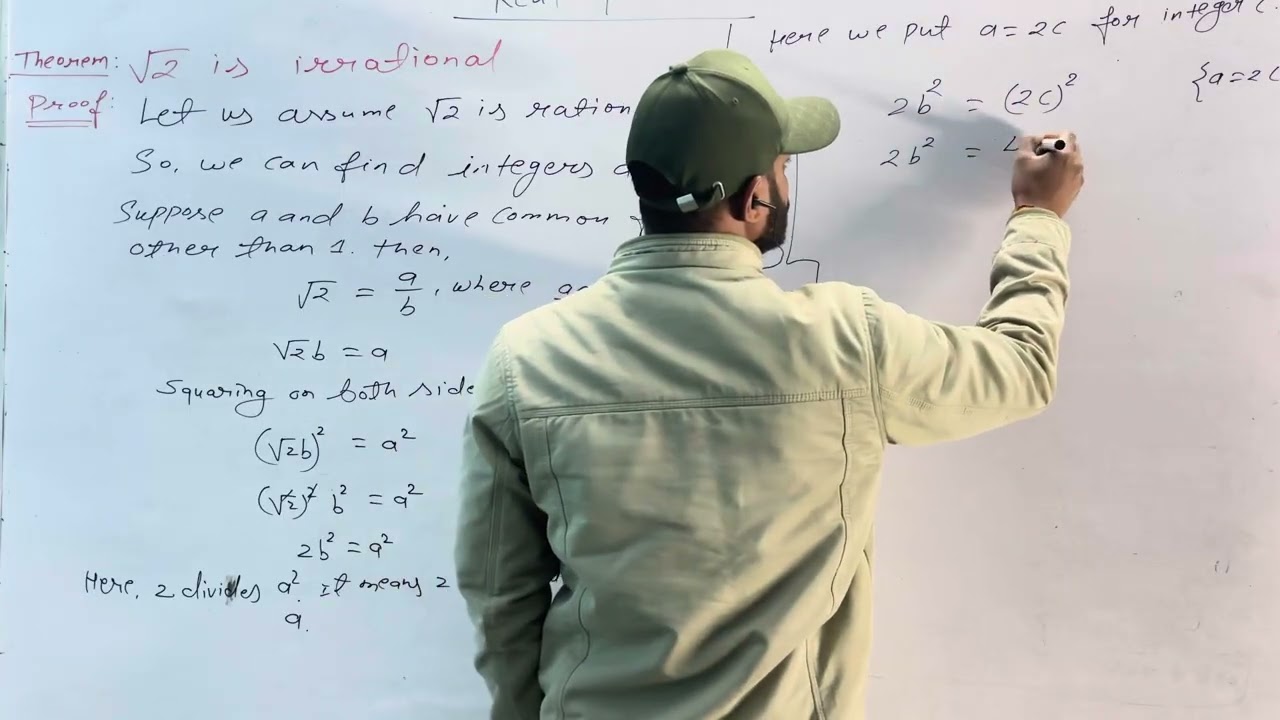 Theorem: √2 is irrational
Proof: Let us assume √2 is ration
So, we can find integers a
Suppose a and b have common
other than 1. then,
√2 = a/b, where
√2 b = a
Squaring on both side
(√2b)² = a²
(√2)² b² = a²
2b² = a²
Here, 2 divides a². It means 2
a.
Here we put a = 2c for integer c.
{a=2c
2b² = (2c)²
2b² = 4